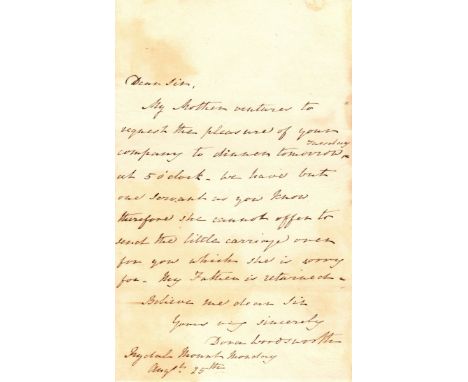 Dear Sir,
My Mother ventures to
request the pleasure of your
Tuesday
company to dinner tomorrow -
at 5 o'clock - we have but
one servant as you know
therefore she cannot offer to
send the little carriage over
for you which she is sorry
for - My Father is returned -
Believe me dear Sir
Yours very sincerely
Dora Wordsworth
Rydal Mount Monday
Augst. 25th